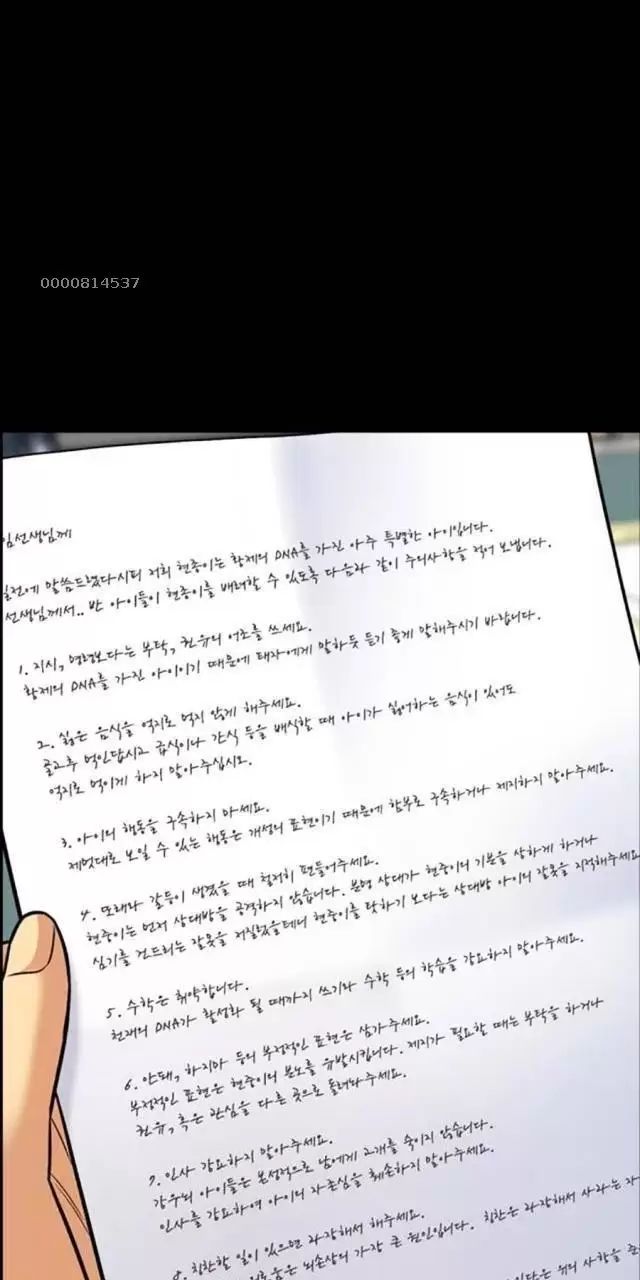 0000814537
임선생님께
일전에 말씀드렸다시피 저희 현종이는 황제의 DNA를 가진 아주 특별한 아이입니다.
선생님께서.. 반 아이들이 현종이를 배려할 수 있도록 다음과 같이 주의사항을 적어 보냅니다.
1. 지시, 명령보다는 부탁, 권유의 어조를 쓰세요.
황제의 DNA를 가진 아이이기 때문에 태자에게 말하듯 듣기 좋게 말해주시기 바랍니다.
2. 싫은 음식을 억지로 먹지 않게 해주세요.
골고루 먹인답시고 급식이나 간식 등을 배식할 때 아이가 싫어하는 음식이 있어도
억지로 먹이게 하지 말아주십시오.
3. 아이의 행동을 구속하지 마세요.
제멋대로 보일 수 있는 행동은 개성의 표현이기 때문에 함부로 구속하거나 제지하지 말아주세요.
4. 또래와 갈등이 생겼을 때 철저히 편들어주세요.
현종이는 먼저 상대방을 공격하지 않습니다. 분명 상대가 현종이의 기분을 상하게 하거나
심기를 건드리는 잘못을 저질렀을테니 현종이를 탓하기 보다는 상대방 아이의 잘못을 지적해주세요
5. 수학은 취약합니다.
천재의 DNA가 활성화 될 때까지 쓰기와 수학 등의 학습을 강요하지 말아주세요.
6. 안돼, 하지마 등의 부정적인 표현은 삼가주세요.
부정적인 표현은 현종이의 분노를 유발시킵니다. 제지가 필요할 때는 부탁을 하거나
권유, 혹은 관심을 다른 곳으로 돌려놔주세요.
7. 인사 강요하지 말아주세요.
극우뇌 아이들은 본성적으로 남에게 고개를 숙이지 않습니다.
인사를 강요하여 아이의 자존심을 훼손하지 말아주세요.
8. 칭찬할 일이 있으면 과장해서 해주세요.
뇌손상의 가장 큰 원인입니다. 칭찬은 과장해서
위의 사항을